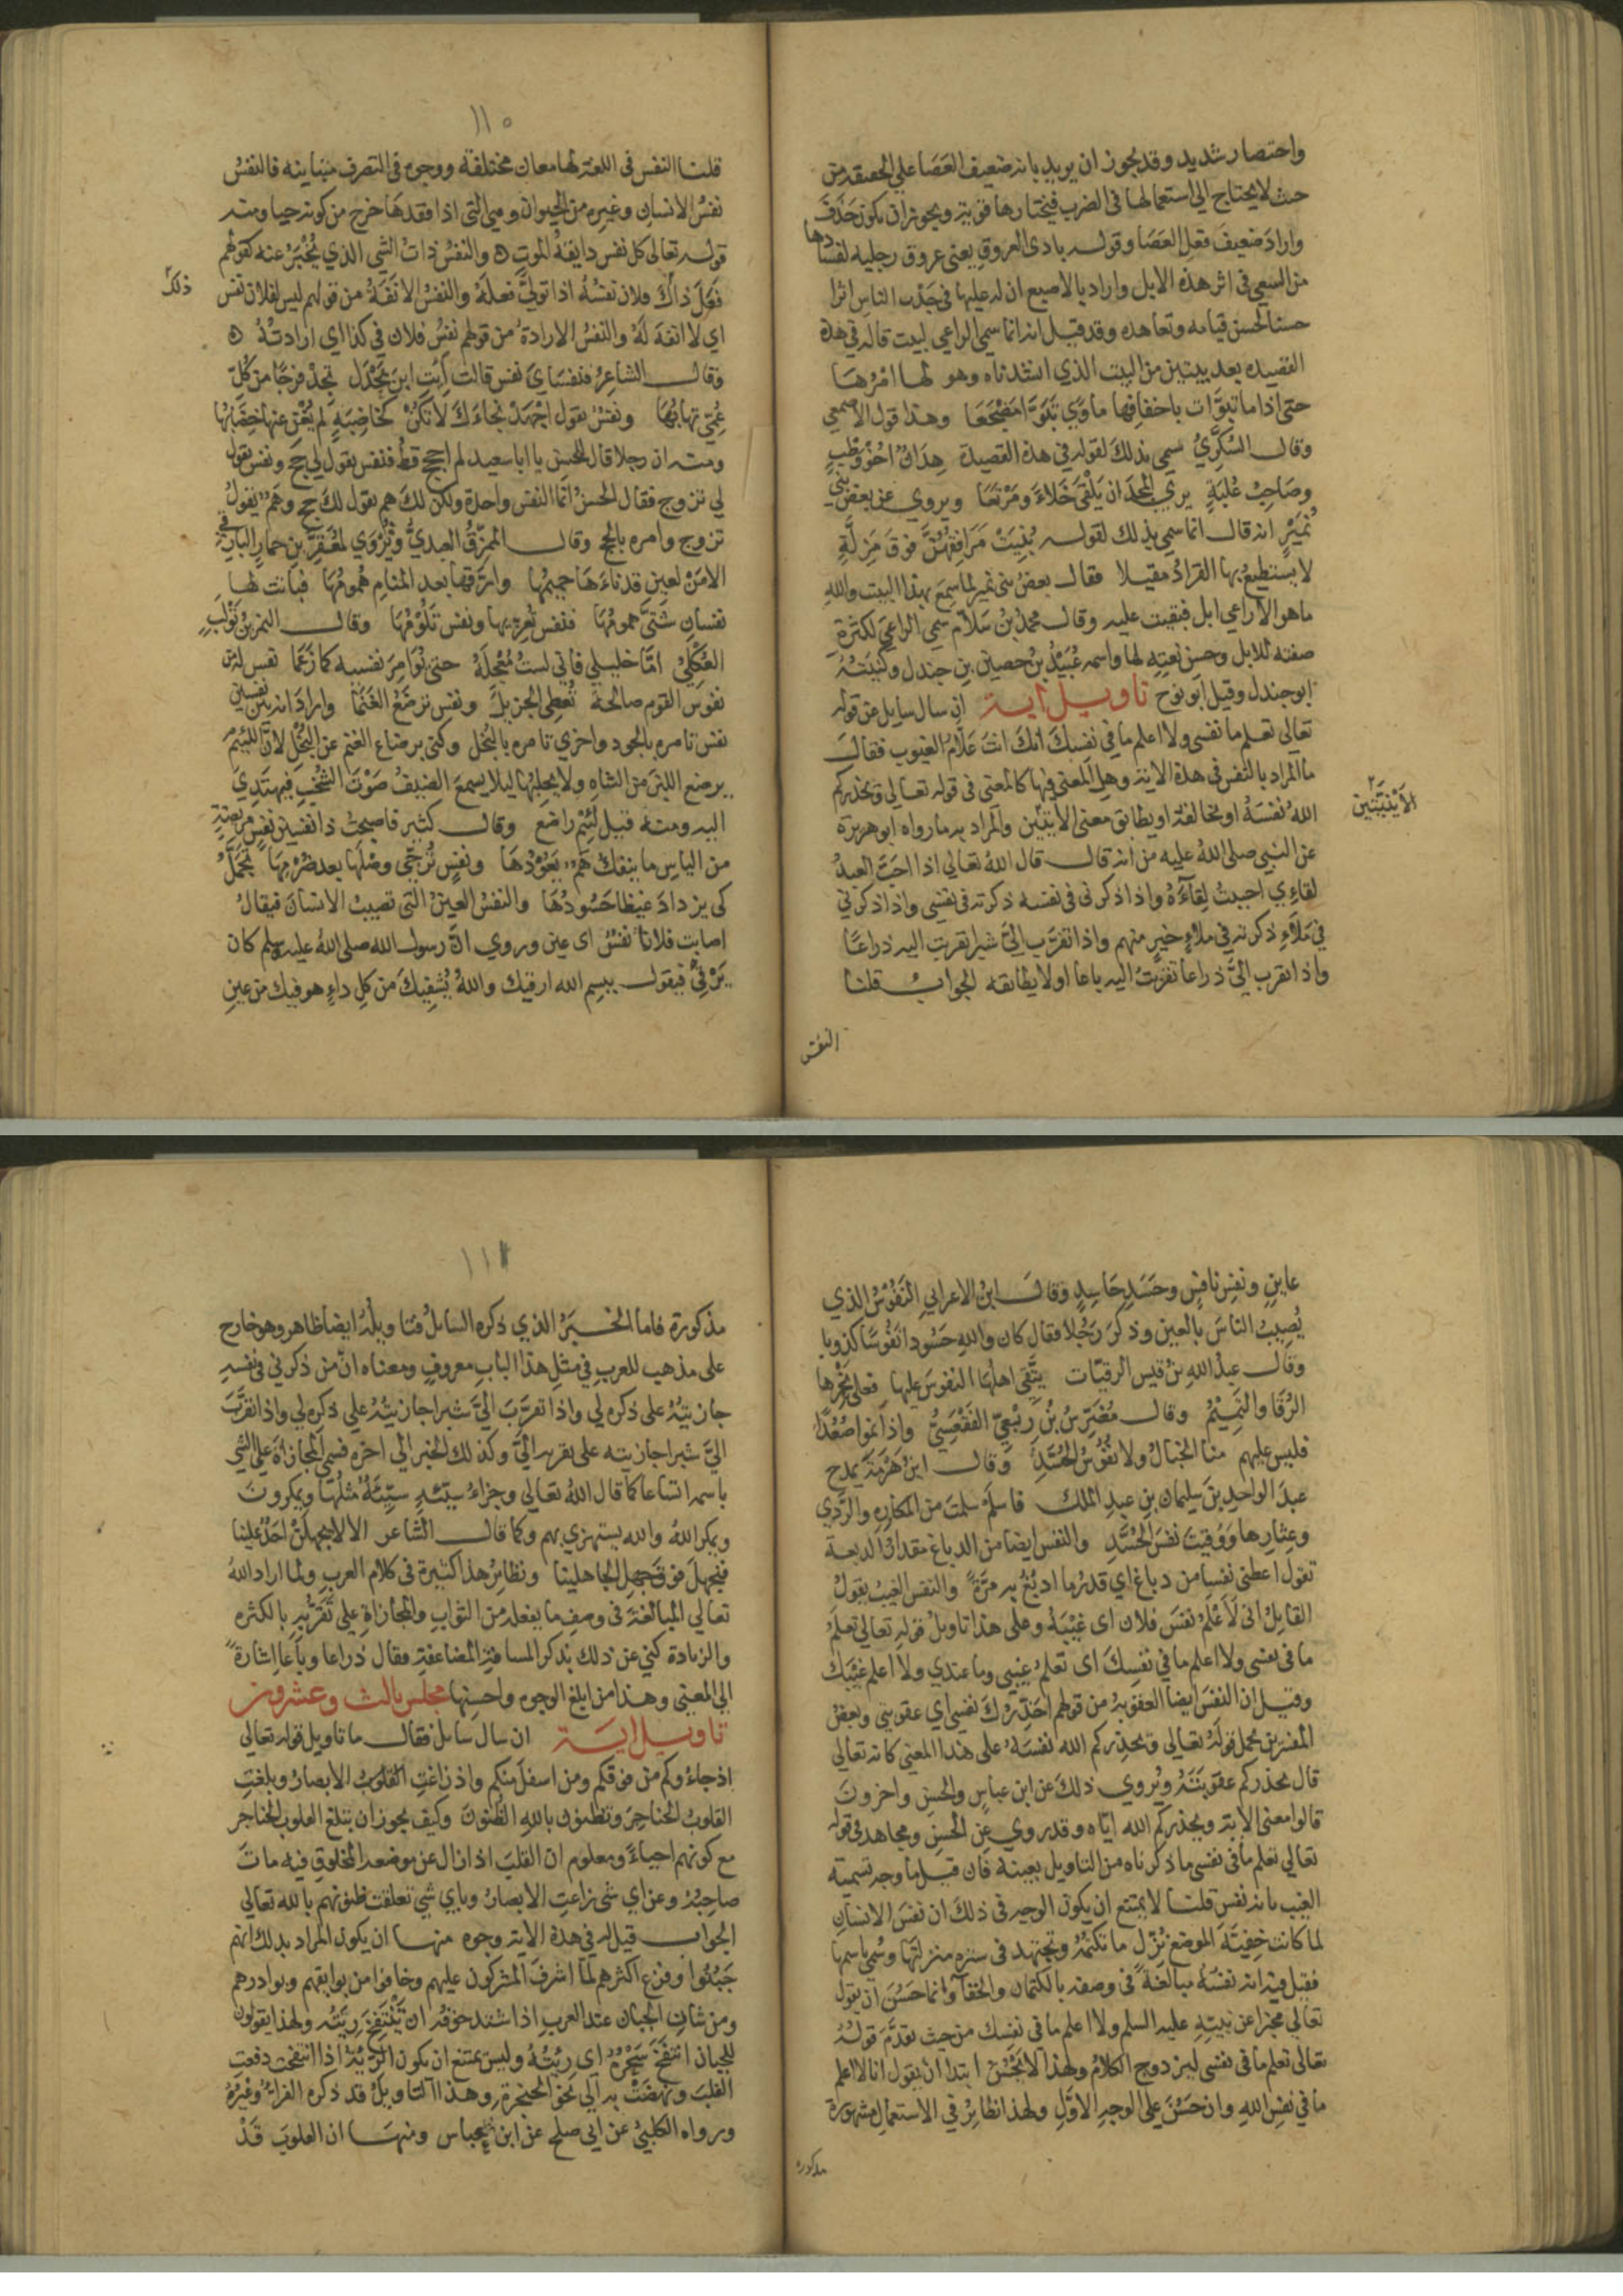 واختصار شديد وقد يجوز ان يريد بانه ضعيف العصا على الحقيقة من
حيث لا يحتاج الى استعمالها في الضرب فيختارها قوية ويجوز ان يكون حذف
واراد ضعيف فعل العصا وقوله بادى العروق يعنى عروق رجليه لفسادها
من السعي في اثر هذه الابل واراد بالاصبع ان له عليها في جذب الناس اثرا
حسنا لحسن قيامه وتعاهده وقد قيل انه انما سمي الراعي لبيت قاله في هذه
القصيده بعد بيتين من البيت الذي انشدناه وهو لها امرها
حتى اذا ما تبوّات باخفافها ماوي تبوّا مضجعا وهذا قول الاصمعي
وقال السُكّريُ سمي بذلك لقوله في هذه القصيدة هدان اخو وطب
وصاحب عُلبَةٍ يري المجد ان يلقى خلاءً ومرتعا ويروي عن بعض بني
نُمَيْرٍ انه قال انما سمي بذلك لقوله بُنِيَتْ مَرافِقهُنّ فوق مَزِلّةٍ
لا يستطيع بها القرادُ مقيلا فقال بعض بنى نمير لما سمع بهذا البيت والله
ما هو الا راعي ابل فبقيت عليه وقال محمد بن سَلّام سمي الراعي لكثرة
صفته للابل وحسن نعته لها واسمه عُبَيْدُ بن حصين بن جندل وكنيته
ابو جندل وقيل ابو نوح تاويل اية ان سال سايل عن قوله
تعالى تعلم ما نفسى ولا اعلم ما في نفسك انك انت علّام الغيوب فقال
ما المراد بالنفس في هذة الاية وهل المعنى فيها كالمعنى في قوله تعالى ويحذركم
اللهُ نفسَهُ او يخالفه او يطابق معنى الآيتين والمراد به ما رواه ابو هريرة
الآيتين
عن النبي صلى الله عليه من انه قال قال اللهُ تعالى اذا احبّ العبدُ
لقاءي احببتُ لقآءهُ واذا ذكرنى في نفسه ذكرته في نفسى واذا ذكرني
في مَلاءٍ ذكرته في ملاءٍ خيرٍ منهم واذا تقرّب اليّ شبرا تقربت اليه ذراعًا
واذا تقرب اليّ ذراعا تقربتُ اليه باعا اولا يطابقه الجوابُ قلنا
النفس
١١٠
قلنا النفس في اللغة لها معان مختلفة ووجوه في التصرف متباينه فالنفسُ
نفسُ الانسان وغيره من الحيوان وهي التى اذا فقدها خرج من كونه حيا ومنه
قوله تعالى كل نفس ذايقةُ الموتِ والنفسُ ذاتُ الشي الذي يُخْبَرُ عنه كقولهم
فعل ذاك فلان نفسُهُ اذا تولّى فعلَهُ والنفسُ الانفَةُ من قولهم ليس لفلان نفس
ذلك
اي لا انفة لهُ والنفسُ الارادةُ من قولهم نفسُ فلان في كذا اي ارادتُهُ
وقال الشاعرُ فنفساي نفس قالت اِئتِ ابن بَحْدَل تجد فرجًا من كُلّ
غُمّى تهابُها ونفسٌ تقول اجْهَدْ نجاءك لا تكُنْ كخاضبةٍ لم يُغْنِ عنها خِضَابُها
ومنه ان رجلا قال للحسن يا ابا سعيد لم احجج قطّ فنفس يقول لي حج ونفس يقول
لي تزوج فقال الحسنُ انّما النفس واحدة ولكن لك هم يقول لك حج وهمٌ يقول
تزوج وامره بالحج وقال الممزّقُ العبديُّ ويُرْوَي لمُعَقِّر بن حمار البارقي
الا من لعينٍ قد ناءهَا حميمُها وارّقها بعد المنام همومُها فباتت لها
نفسان شتّى همومُها فنفس تُعزّيها ونفس تلُومُها وقال النمر بن تَوْلَب
العُكْليُّ امّا خليلي فانى لستُ مُعْجِلَهُ حتى يُؤامِرَ نفسيه كما زَعَما نفس له من
نفوس القوم صالحة تُعطى الجزيل ونفس ترضعُ الغَنَمَا واراد انه بين نفسين
نفس تامره بالجود واخرَي تامره بالبُخل وكنى برضاع الغنم عن البُخل لانّ اللئيم
يرضع اللبن من الشاه ولا يحلبها ليلا يسمع الضيفُ صَوْتَ الشُخْبِ فيهتدِيَ
اليه ومنه قيل لئيم راضع وقال كثير فاصبحتُ ذا نفسين نفسٍ مريضةٍ
من الياس ما ينفك همٌّ يَعُوْدُهَا ونفسٍ تُرجّى وصْلَها بعد صُرْمِها تجمّلُ
كى يزدادَ غيظا حَسُودُهَا والنفسُ العينُ التى تصيبُ الانسانَ فيقالُ
اصابت فلانا نفسٌ اى عين وروي انّ رسول الله صلى اللهُ عليه وسلم كان
يَرْقي فيقول ببسم الله ارقيك واللهُ يُشفِيكَ من كلِ داءٍ هو فيك من عينِ
عاينٍ ونفسِ نافسٍ وحسَدِ حَاسِدٍ وقال ابنُ الاعرابي النَفُوْسُ الذي
يُصيبُ الناس بالعين وذكر رجُلا فقال كان والله حَسُودا نَفُوسًا كذوبا
وقال عبد الله بن قيس الرقيّات يتّقى اهلُهَا النفوسَ عليها فعلى نحْرِها
الرُقَا والتَّميْمُ وقال مُضَرِّسُ بْنُ رِبْعيّ الفَقْعَسيُّ واذا نموا صُعُدًا
فليس عليهم منا الخبالُ ولا نُفُوْسُ الحُسَّدِ وقال ابنُ هَرْمَةَ يمدح
عبدَ الواحدِ بنَ سليمان بن عبد الملك فاسلَمْ سلمتَ من المكاره والرَّدي
وعِثارِها ووُقيتَ نفسَ الحُسَّدِ والنفس ايضا من الدباغ مقدارُ الدبغة
تقول اعطنى نفسا من دباغ اي قدرُ ما ادبُغُ به مرّةً والنفس الغيبُ يقول
القايل انى لَاَعْلَمُ نفسَ فلان اى غيْبَهُ وعلى هذا تاويلُ قوله تعالى تعلمُ
ما في نفسى ولا اعلم ما في نفسك اى تعلم غيبي وما عندي ولا اعلم غيْبَكَ
وقيل ان النفسَ ايضا العقوبةُ من قولهم احذّرُكَ نفسي اي عقوبتي وبعضُ
المفسرين يحمل قولَهُ تعالى ويحذركم الله نفسَهُ على هذا المعنى كانه تعالى
قال يحذركم عقوبتَهُ ويُروي ذلك عن ابن عباس والحسن واخرونَ
قالوا معنى الاية ويحذركم الله ايّاه وقد روي عن الحسن ومجاهد في قوله
تعالى تعلم ما في نفسى ما ذكرناه من التاويل بعينه فان قيل ما وجه تسميته
الغيب بانه نفس قلنا لا يمتنع ان يكون الوجه في ذلك ان نفسَ الانسانِ
لما كانت خفيّةَ الموضع نُزّل ما تكتُمُهُ وتجتهد في ستره منزلتَها وسُمي باسمها
فقيل فيه انه نفسَهُ مبالغةً في وصفه بالكتمان والخفآء وانما حَسُنَ ان يقول
تعالى مخبرا عن نبيّه عليه السلم ولا اعلم ما في نفسك من حيث تقدّمَ قولُهُ
تعالى تعلم ما في نفسى ليزدوج الكلامُ ولهذا لا يَحْسُنُ ابتدا ان يقول انا لا اعلم
ما في نفس الله وان حَسُنَ على الوجهِ الاوّلِ ولهذا نظايرُ في الاستعمال مشهورة
مذكورة
١١١
مذكورة فاما الخبرُ الذي ذكره السايلُ فتاويلُهُ ايضا ظاهر وهو خارج
على مذهب للعرب في مثل هذا الباب معروفٍ ومعناه انّ من ذكرني في نفسه
جازيتُهُ على ذكره لي واذا تقرَّبَ اليَّ شبرا جازيتُهُ على ذكره لي واذا تقرّبَ
اليَّ شبرا جازيته على تقربه اليّ وكذلك الخبر الى اخره فسمي المجازاة على الشي
باسمه اتساعا كما قال اللهُ تعالى وجزاءُ سيّئةٍ سيّئةٌ مثلُها ويمكرونَ
ويمكر اللهُ والله يستهزي بهم وكما قال الشاعر الا لا يجهلنْ احدٌ علينا
فنجهلَ فوق جهلِ الجاهلينا ونظايرُ هذا كثيرة في كلام العرب ولما اراد اللهُ
تعالى المبالغةَ في وصفِ ما يفعله من الثواب والمجازاةِ على تَقَرُّبِهِ بالكثره
والزيادة كني عن ذلك بذكر المسافة المضاعفةِ فقال ذراعا وباعا اشارةً
الى المعنى وهذا من ابلغ الوجوه واحسنها مجلس ثالث وعشرون
تاويل اية ان سال سايل فقال ما تاويل قوله تعالى
اذ جاءُوكم من فوقكم ومن اسفل منكم واذ زاغتِ القلوب الابصارُ وبلغتِ
القلوبُ الحناجرَ وتظنون بالله الظنونَ وكيف يجوز ان تبلغ القلوب الحناجر
مع كونهم احياءً ومعلوم ان القلبَ اذا زال عن موضعه المخلوقِ فيه ماتَ
صاحِبُهُ وعن اي شى زاغتِ الابصارُ وباي شي تعلقت ظنونهم بالله تعالى
الجواب قيل له في هذة الاية وجوه منها ان يكون المراد بذلك انهم
جَبُنُوا وفزع اكثرهم لمّا اشرفَ المشركون عليهم وخافوا من بوايقهم وبوادرهم
ومن شانِ الجبان عند العرب اذا اشتد خوفُهُ ان تَنْتَفِخَ رِيَتُه ولهذا يقولون
للجبان انتفَخَ سَحْرُهُ اي رِئتُهُ وليس يمتنع ان يكون الرّئةُ اذا انتفخت دفعتِ
القلبَ ونهضَتْ به الى نحو الحنجرة وهذا التاويلُ قد ذكره الفراءُ وغيرُهُ
ورواه الكلبيُّ عن ابى صلح عن ابن عباس ومنهَا ان القلوبَ قَدْ